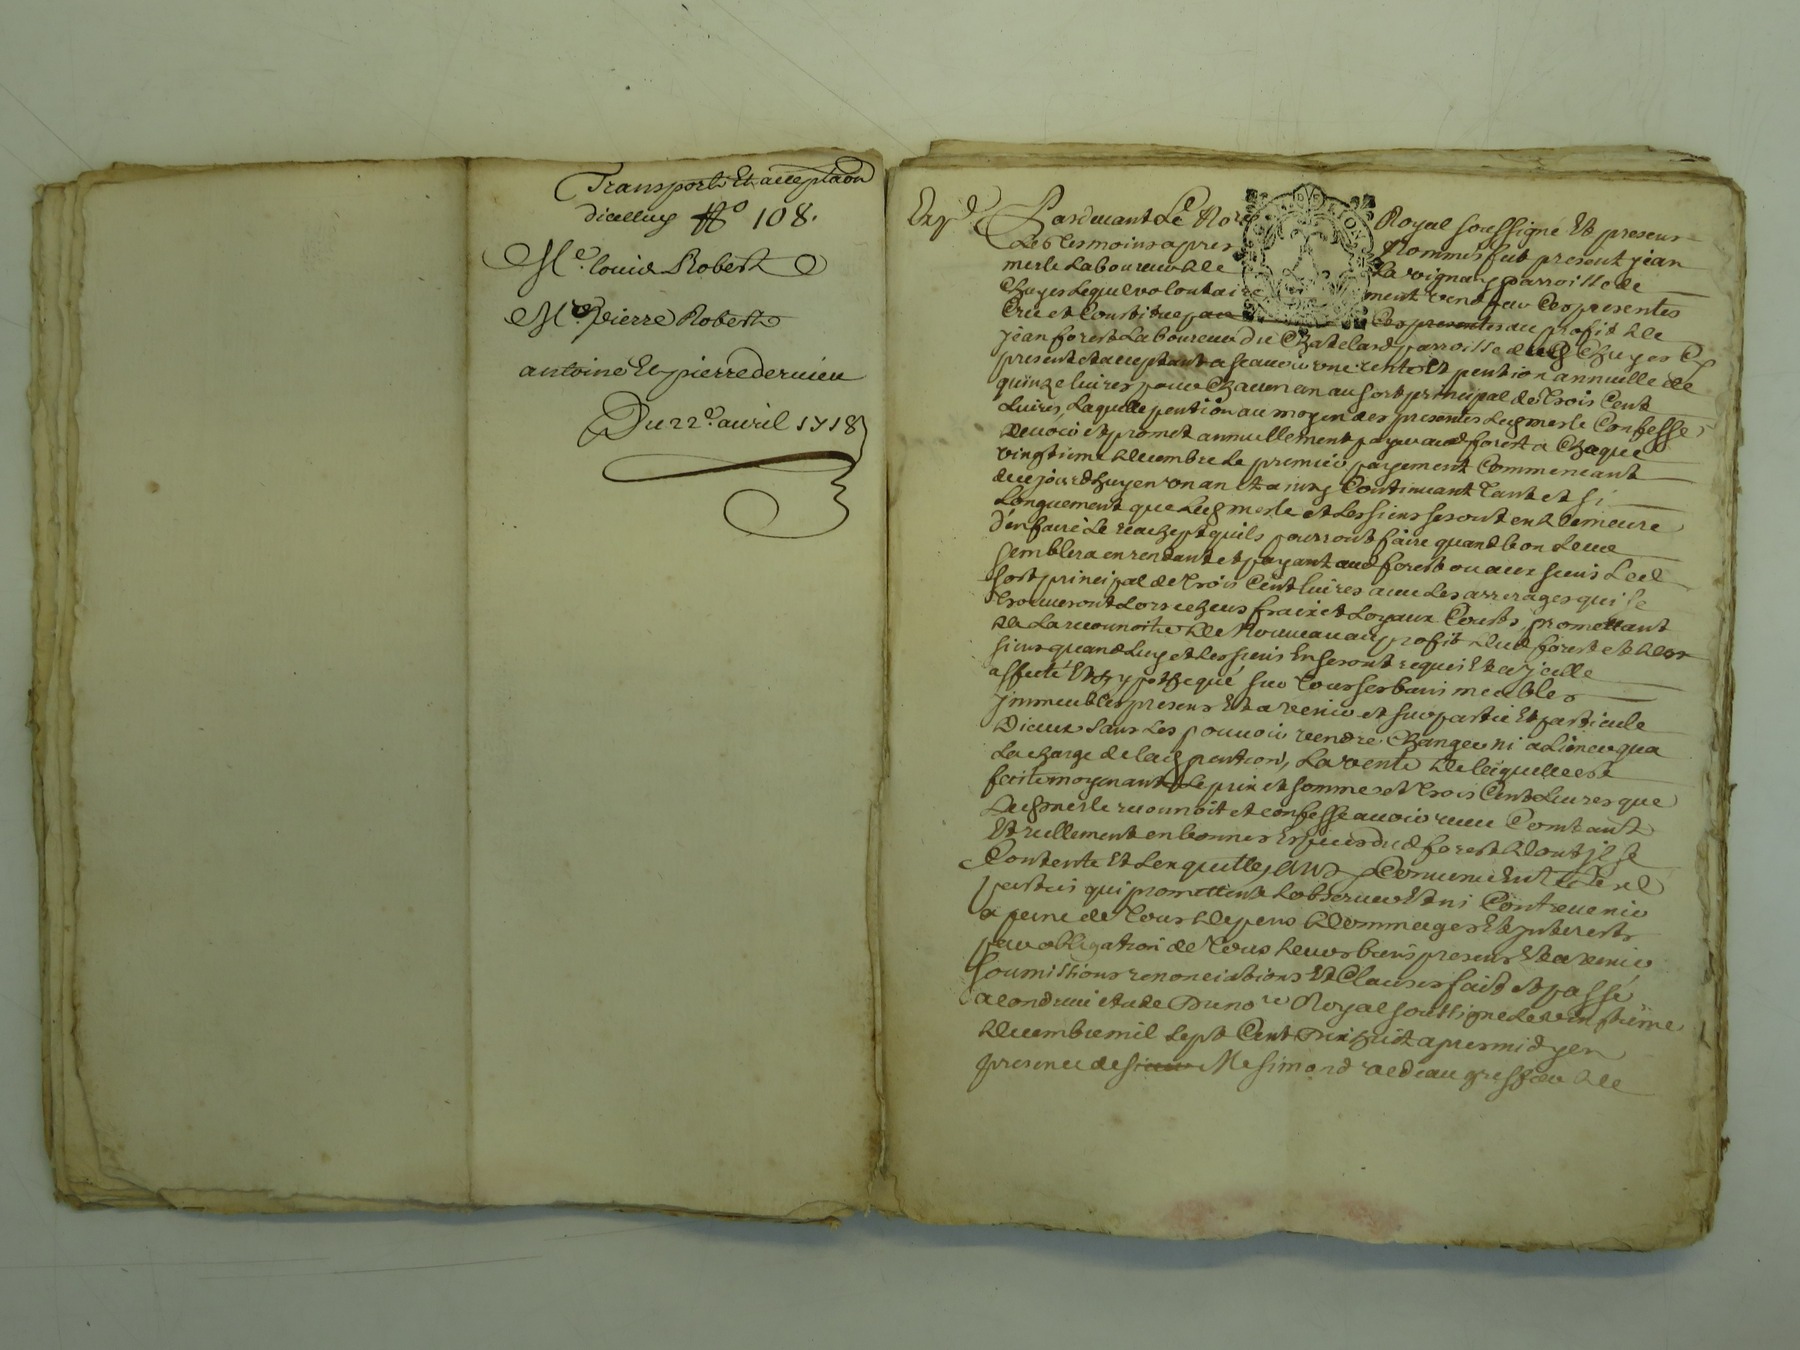 Transport Et acceptaon
dicelluy N° 108.
Me. louis Robert
Me. pierre Robert
antoine Et pierre dernieu
Du 22e. avril 1718
Expd.
Pardevant Le No.re Royal soussigné Et presens
Les tesmoins apres Nommés fut present jean
merle Laboureur de La vignan parroisse de
Chuyes Lequel volontairement vend par Ces presentes
Crée et Constitue par Ces presentes au profit de
jean forest Laboureur du Chatelard parroisse dud Chuyes
present et acceptant a scavoir une rente Et pention annuelle de
quinze livres pour Chacun an au sort principal de trois Cent
Livres, Laquelle pention au moyen des presentes Led merle Confesse
devoir et promet annuellement payer aud forest a Chaque
vingtieme decembre Le premier payement Commencant
de ce jourdhuy en un an et ainsy Continuant tant et si
Longuement que Led merle et Les siens seront en demeure
d'en faire Le reachept quils pourront faire quand bon Leur
semblera en rendant et payant aud forest ou aux siens Led
sort principal de trois Cent livres avec Les arrerages qui se
trouveront Lors echeus fraix et Loyaux Couts, promettant
de La reconnoitre de Nouveau au profit dud forest et des
siens quand Luy et Les siens En seront requis Et a jcelle
affecté Et hypothequé sur tous ses biens meubles
jmmeubles presens Et a venir et sur partie Et particule
Diceux sans Les pouvoir vendre Changer ni aliener qua
La charge de lad pention, La vente de laquelle est
faite moyenant Le prix et somme et trois Cent Livres que
Led merle reconnoit et confesse avoir receu Comtant
Et reellement en bonnes Especes dud forest dont jl se
Contente Et Len quitte, Convenu Ent Les d
parties qui promettent Lobserver Et ni Contrevenir
a peine de tous depens dommages Et jnterests
par obligation de tous Leurs biens presens Et a venir
soumissions renonciations Et Clauses fait et passé
a Condrieu etude Du no.re Royal soussigné Le vingtieme
decembre mil sept Cent Dix huit apres midy en
presence de sieur Me simond vedeau greffier de